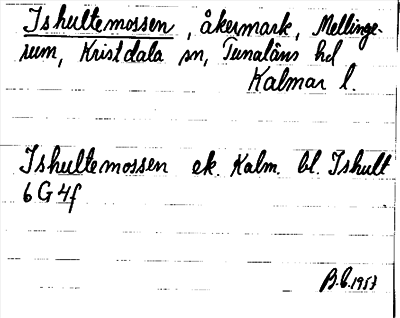 Ishultemossen, åkermark, Mellinge-
rum, Kristdala sn, Tunaläns hd
Kalmar l.
Ishultemossen ek. Kalm. bl. Ishult
6 G 4f
B.C. 1957